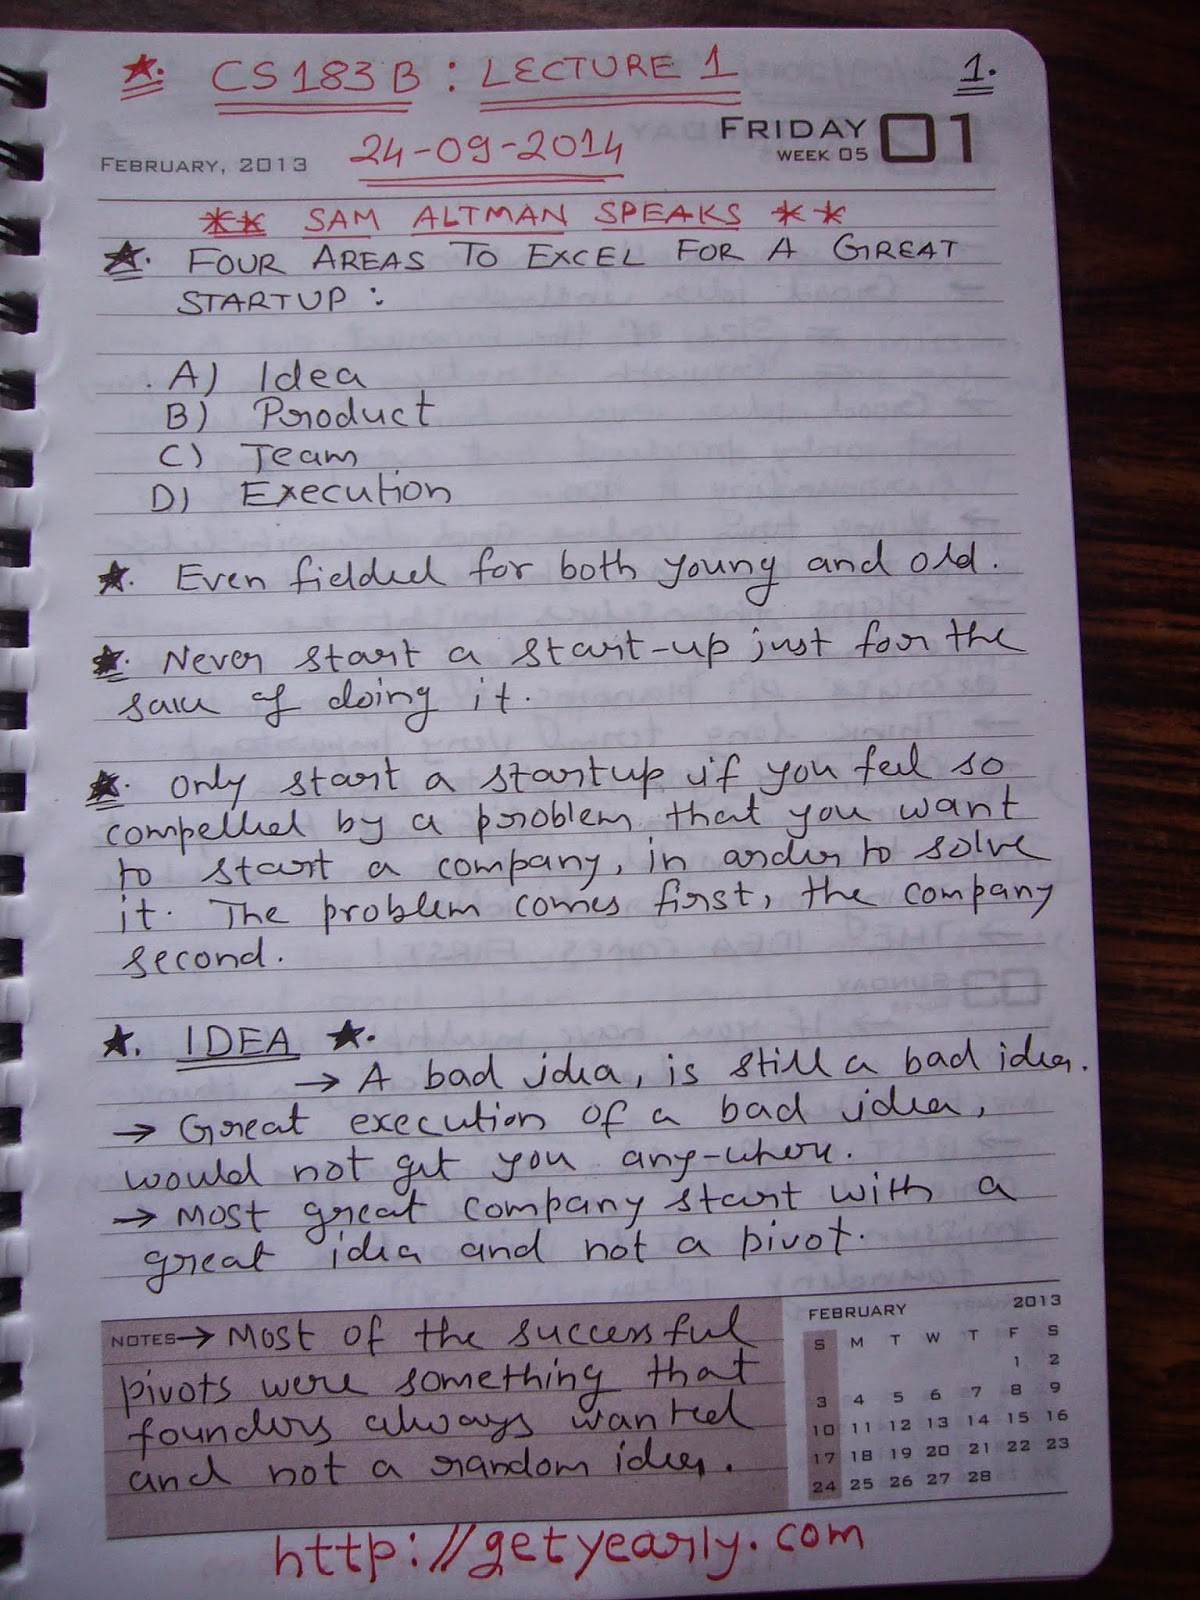 ★. CS183B : LECTURE 1 1.
FRIDAY 01
WEEK 05
FEBRUARY, 2013 24-09-2014
** SAM ALTMAN SPEAKS **
★. FOUR AREAS TO EXCEL FOR A GREAT
STARTUP :
A) Idea
B) Product
C) Team
D) Execution
★. Even fielded for both young and old.
★. Never start a start-up just for the
sake of doing it.
★. Only start a startup if you feel so
compelled by a problem that you want
to start a company, in order to solve
it. The problem comes first, the company
second.
★. IDEA ★.
→ A bad idea, is still a bad idea.
→ Great execution of a bad idea,
would not get you any-where.
→ Most great company start with a
great idea and not a pivot.
NOTES → Most of the successful
pivots were something that
founders always wanted
and not a random idea.
FEBRUARY 2013
S M T W T F S
1 2
3 4 5 6 7 8 9
10 11 12 13 14 15 16
17 18 19 20 21 22 23
24 25 26 27 28
http://getyearly.com